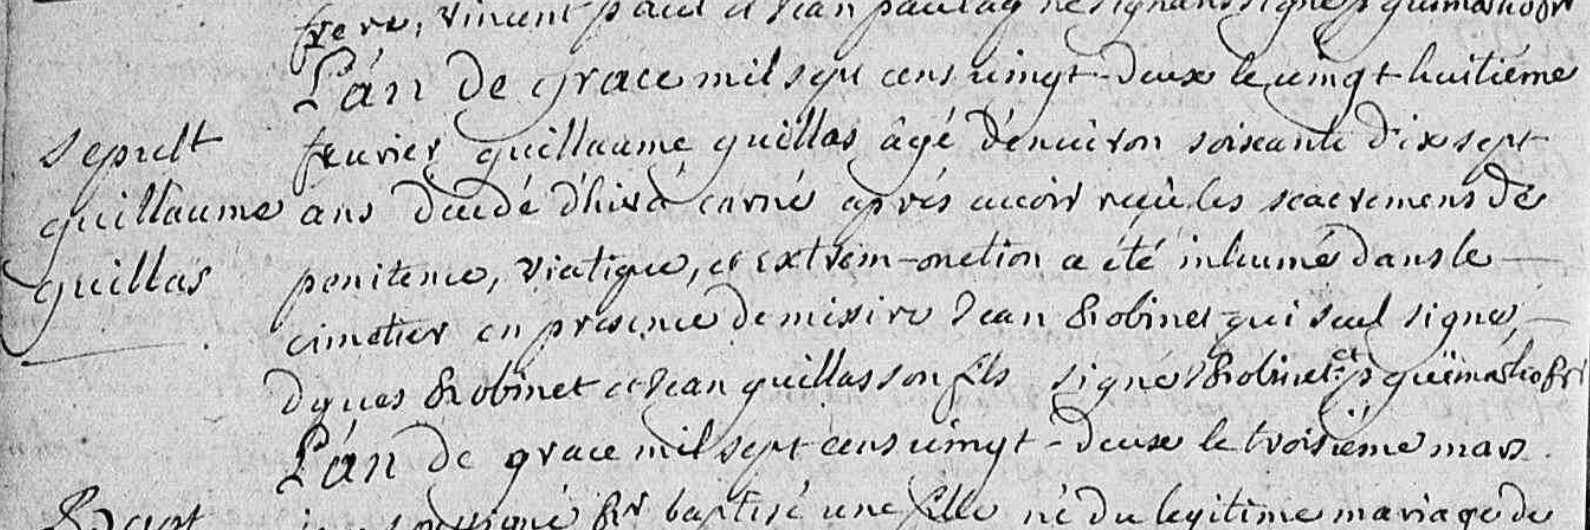 frere, vincent paul et Jean paul qui ne signans signé p guimarho fr
L'an de grace mil sept cens vingt-deux le vingt huitiéme
Sepult
fevrier guillaume guillas âgé d'enviiron soixante dix sept
guillaume
ans decédé d'hier à carné aprés avoir reçu les sacremens de
guillas
penitence, viatique, et extrem-onction a été inhumé dans le
cimetier en presence de missire Jean Robinet qui seul signe,
Robinet et Jean guillas son fils signé Robinet et p guimarho fr
L'an de grace mil sept cens vingt-deux le troisiéme mars
Bapt
soussigné fr baptisé une fille né du legitime mariage de